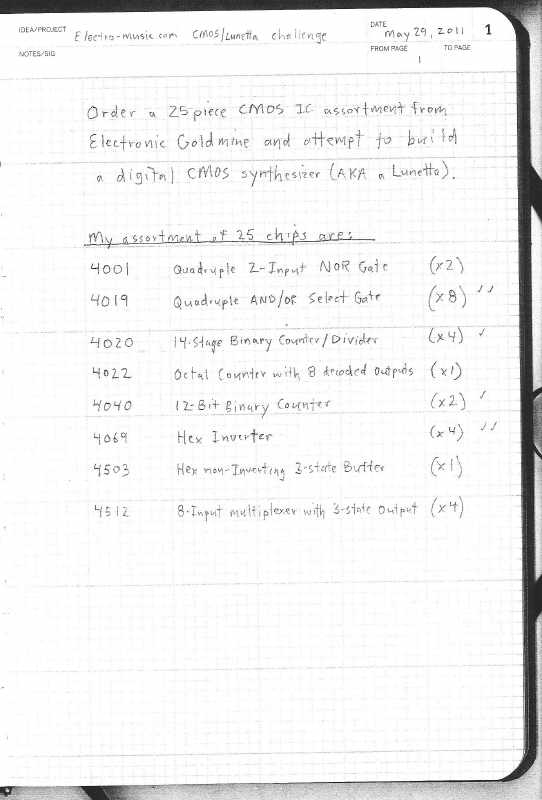 IDEA/PROJECT Electro-music.com CMOS/Lunetta challenge
DATE May 29, 2011
1
NOTES/SIG
FROM PAGE 1
TO PAGE
Order a 25 piece CMOS IC assortment from
Electronic Goldmine and attempt to build
a digital CMOS synthesizer (AKA a Lunetta).
My assortment of 25 chips are:
4001 Quadruple 2-Input NOR Gate (x2)
4019 Quadruple AND/OR Select Gate (x8) ✓✓
4020 14-Stage Binary Counter/Divider (x4) ✓
4022 Octal Counter with 8 decoded outputs (x1)
4040 12-Bit Binary Counter (x2) ✓
4069 Hex Inverter (x4) ✓✓
4503 Hex non-Inverting 3-state Buffer (x1)
4512 8-Input multiplexer with 3-state Output (x4)